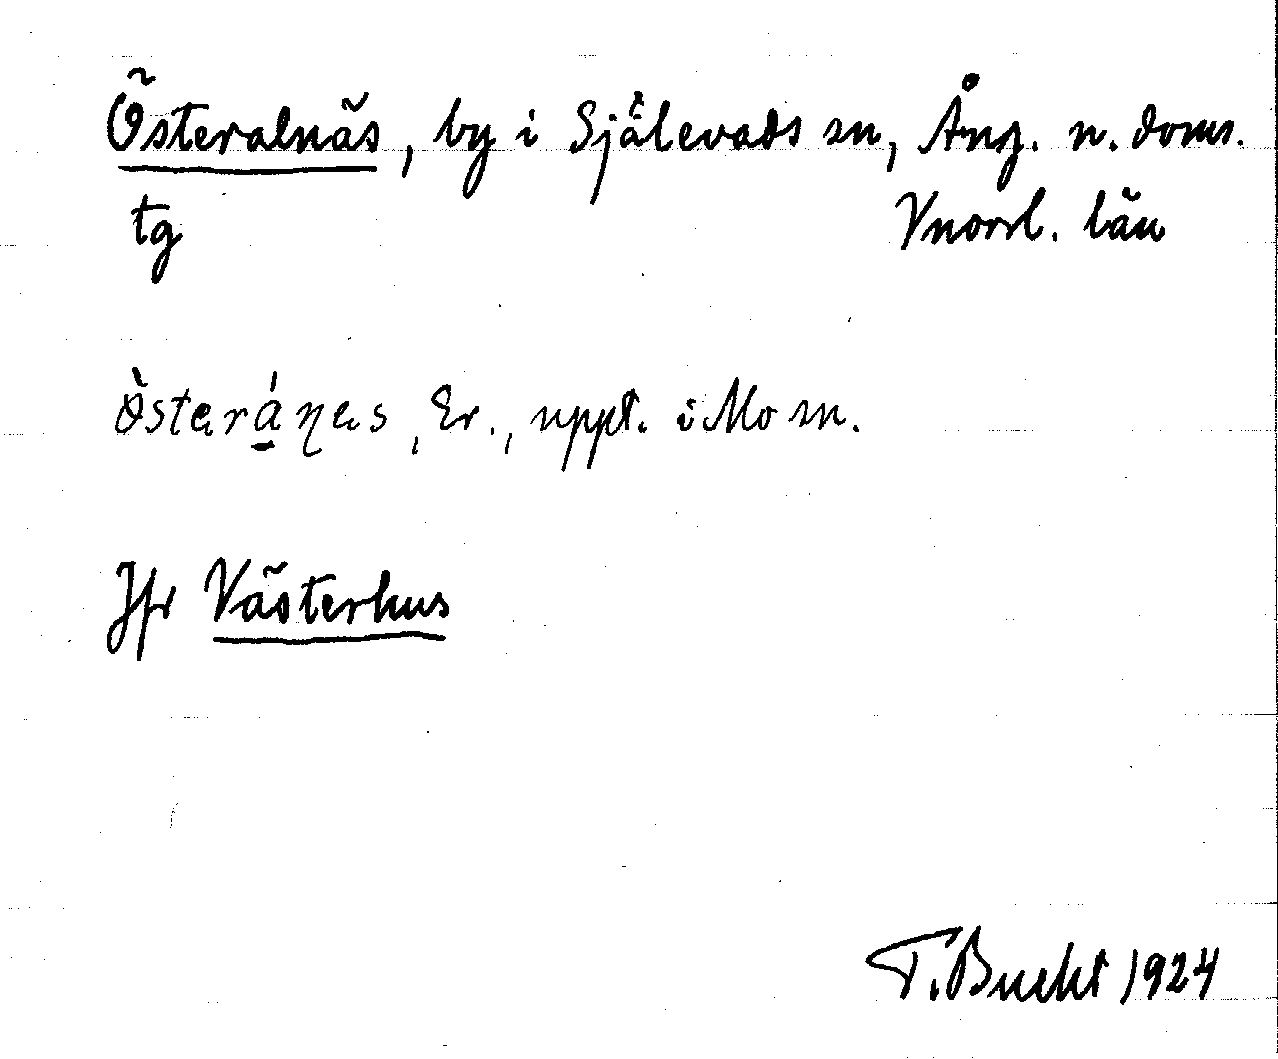 Österalnäs, by i Själevads sn, Ång. n. doms.
tg Vnorrl. län
ö̀stɐrá̱ɳɐs, Er., uppt. i Mo sn.
Jfr Västerhus
T. Bucht 1924